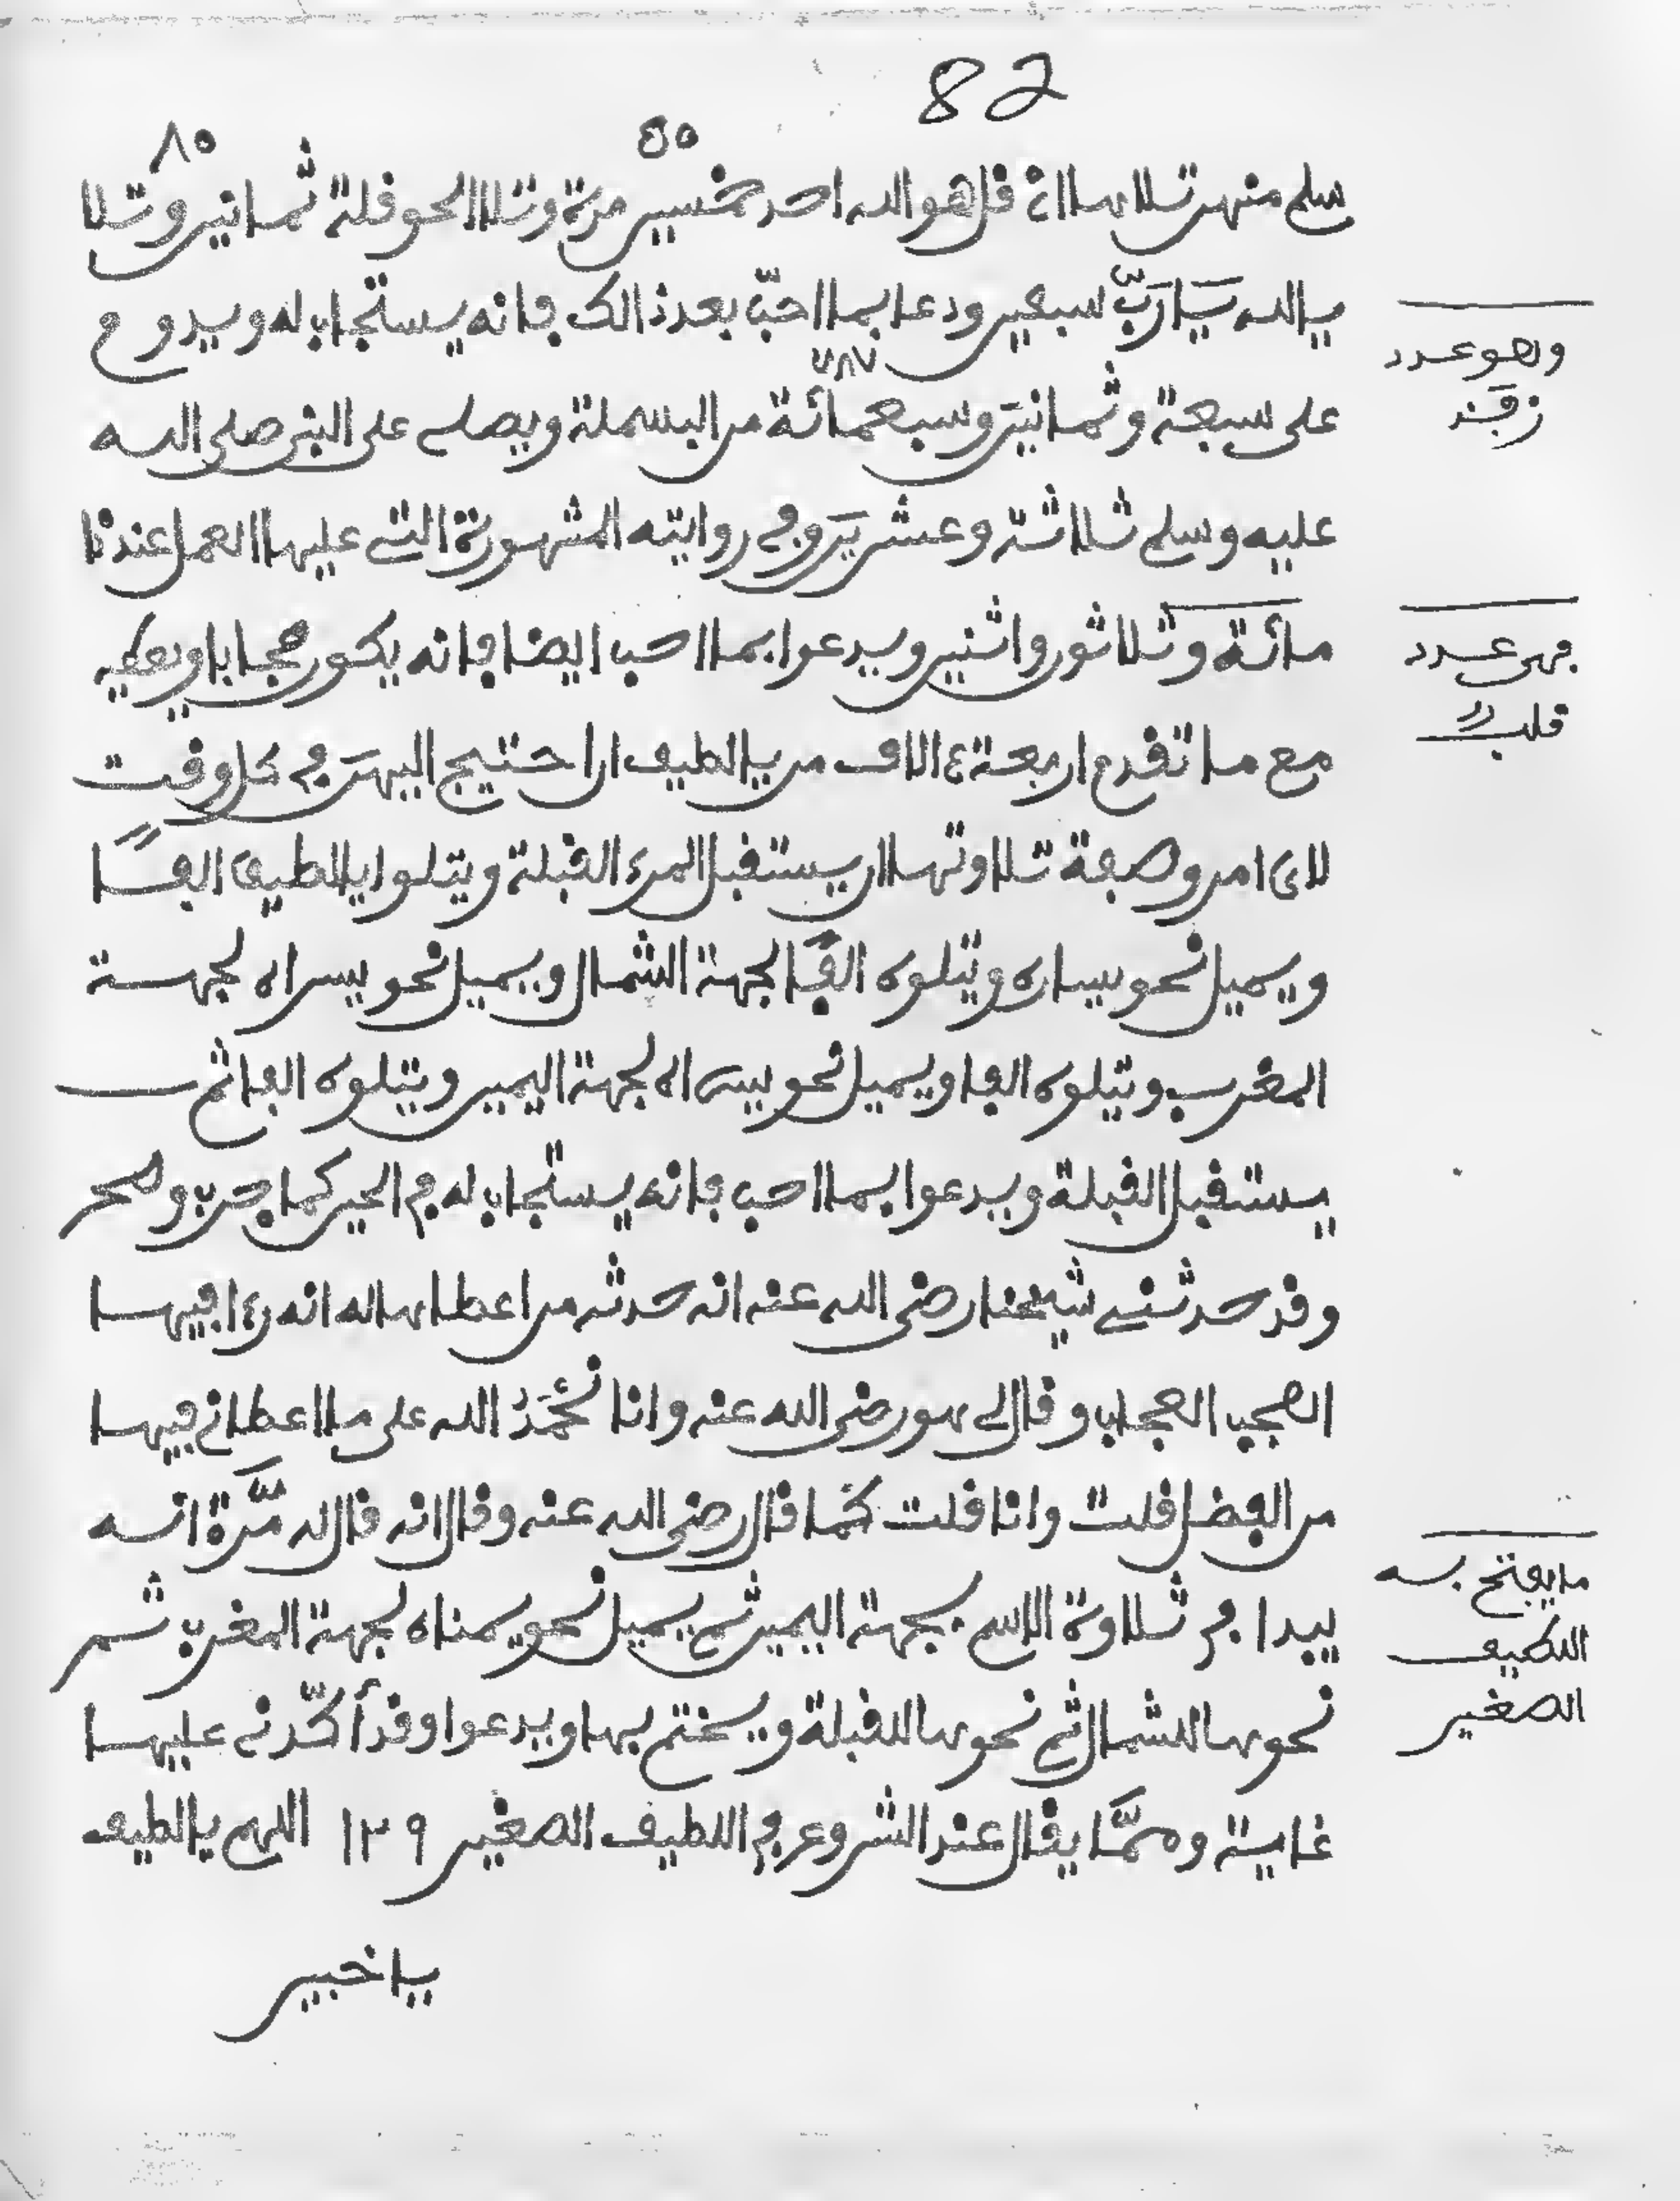 82
٥٥ ٨٥
سلم منهن تلا بها اي قل هو الله احد خمسين مرة وتلا الحوقلة ثمانين وتلا
يا الله يَا رَبّ سبعين ودعا بما احبّ بعد ذالك فانه يستجاب له ويدوم
٧٨٧
على سبعة وثمانين وسبعمائة من البسملة ويصلي على النبي صلى الله
عليه وسلم ثلاثة وعشرين وفي روايته المشهورة التي عليها العمل عندنا
مائة وثلاثون واثنين ويدعوا بما احب ايضا فانه يكون مجابا ويكفيه
مع ما تقدم اربعة ءالاف من يا لطيف ان احتيج اليهن في كل وقت
لاي امر وصفة تلاوتها ان يستقبل المرء القبلة ويتلوا يا لطيف الفًا
ويميل نحو يساره ويتلوه الفًا لجهة الشمال ويميل نحو يسراه لجهة
المغرب ويتلوه الفا ويميل نحو يسراه لجهة اليمين ويتلوه الفا ثم
يستقبل القبلة ويدعوا بما احب فانه يستجاب له في الحين كما جرب وصح
وقد حدثني شيخنا رضي الله عنه انه حدثه من اعطاها له انه رءا فيها
العجب العجاب وقال لي هو رضي الله عنه وانا نَحْمَدُ الله على ما اعطاني فيها
من الفضل قلت وانا قلت كما قال رضي الله عنه وقال انه قال له مَّرة انه
يبدا في تلاوة الاسم بجهة اليمين ثم يميل نحو يمناه لجهة المغرب ثم
نحوها للشمال ثم نحوها للقبلة ويختم بها ويدعوا وقد أكّدني عليها
غاية وممَّا يقال عند الشروع في اللطيف الصغير ١٢٩ اللهم يا لطيف
يا خبير
وهو عدد
فهي عدد
قلب
ما يفتح به
اللطيف
الصغير